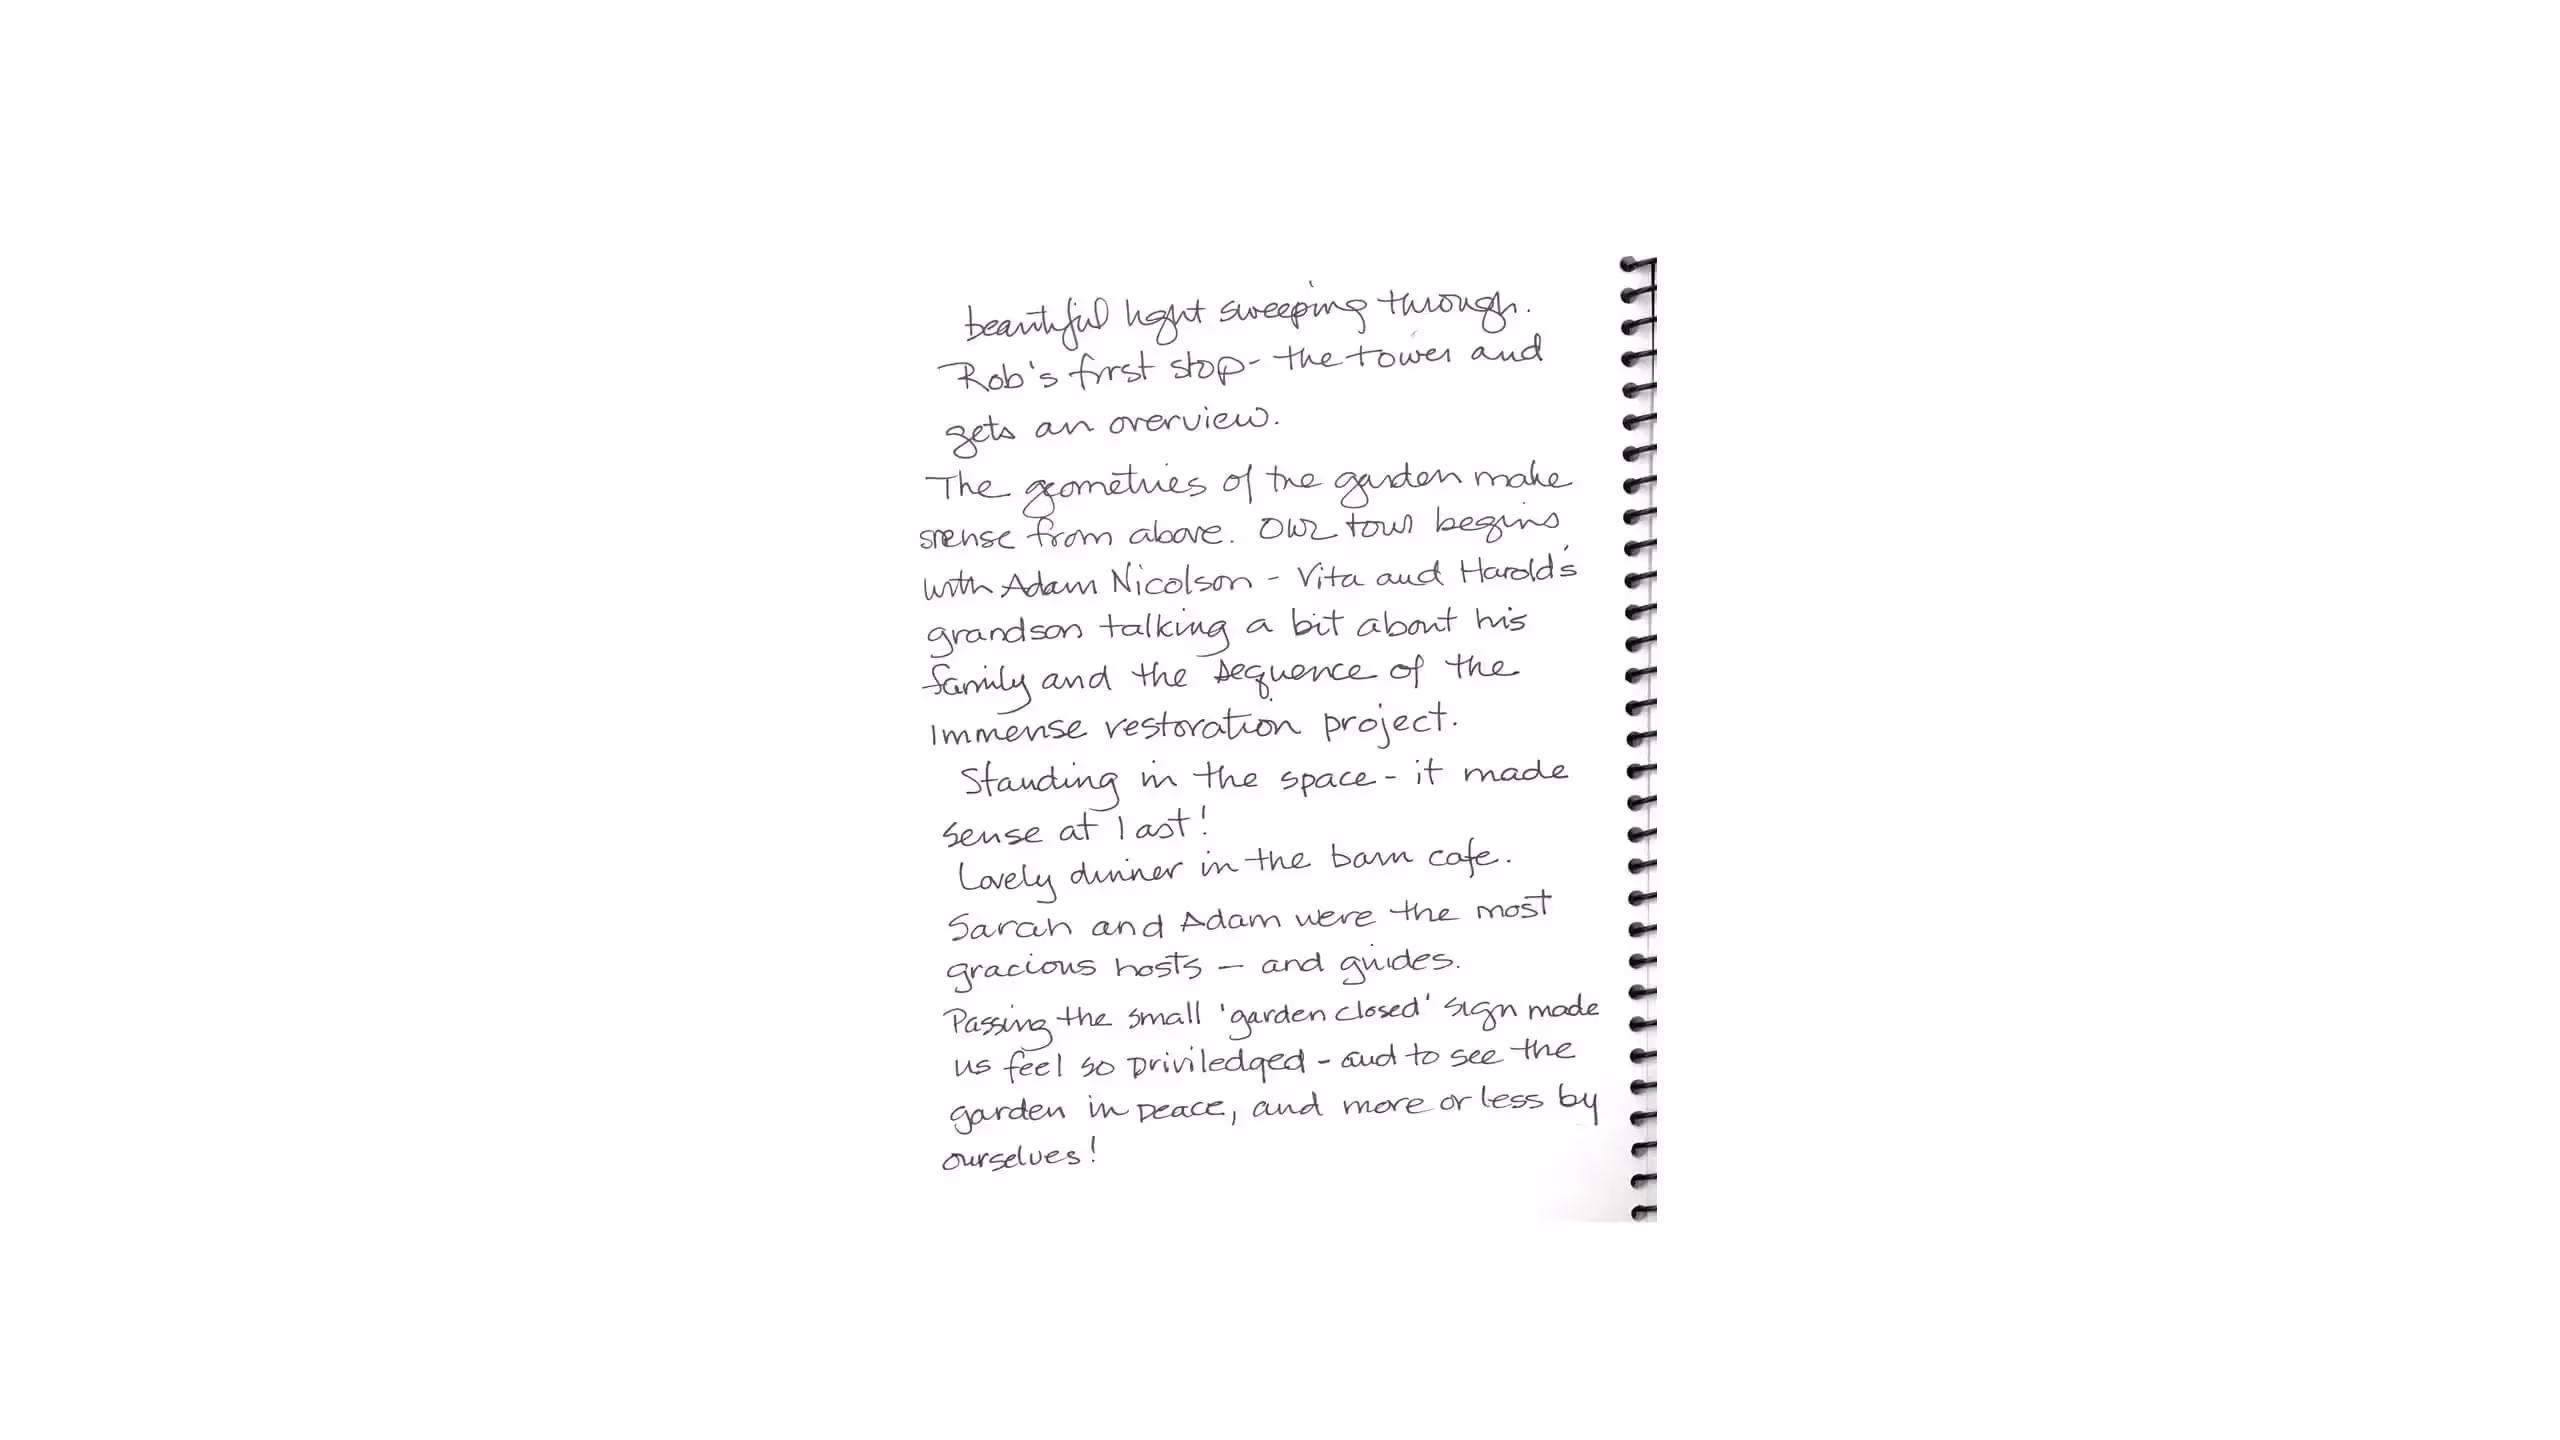 beautiful light sweeping through.
Rob's first stop - the tower and
gets an overview.
The geometries of the garden make
sense from above. Our tour begins
with Adam Nicolson - Vita and Harold's
grandson talking a bit about his
family and the sequence of the
immense restoration project.
Standing in the space - it made
sense at last!
Lovely dinner in the barn cafe.
Sarah and Adam were the most
gracious hosts — and guides.
Passing the small 'garden closed' sign made
us feel so priviledged - and to see the
garden in peace, and more or less by
ourselves!